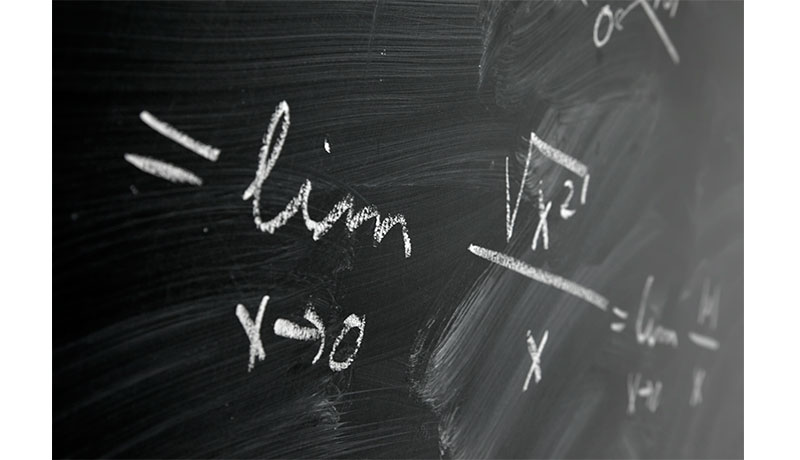 = lim x→0 √x² / x = lim x→0 |x| / x